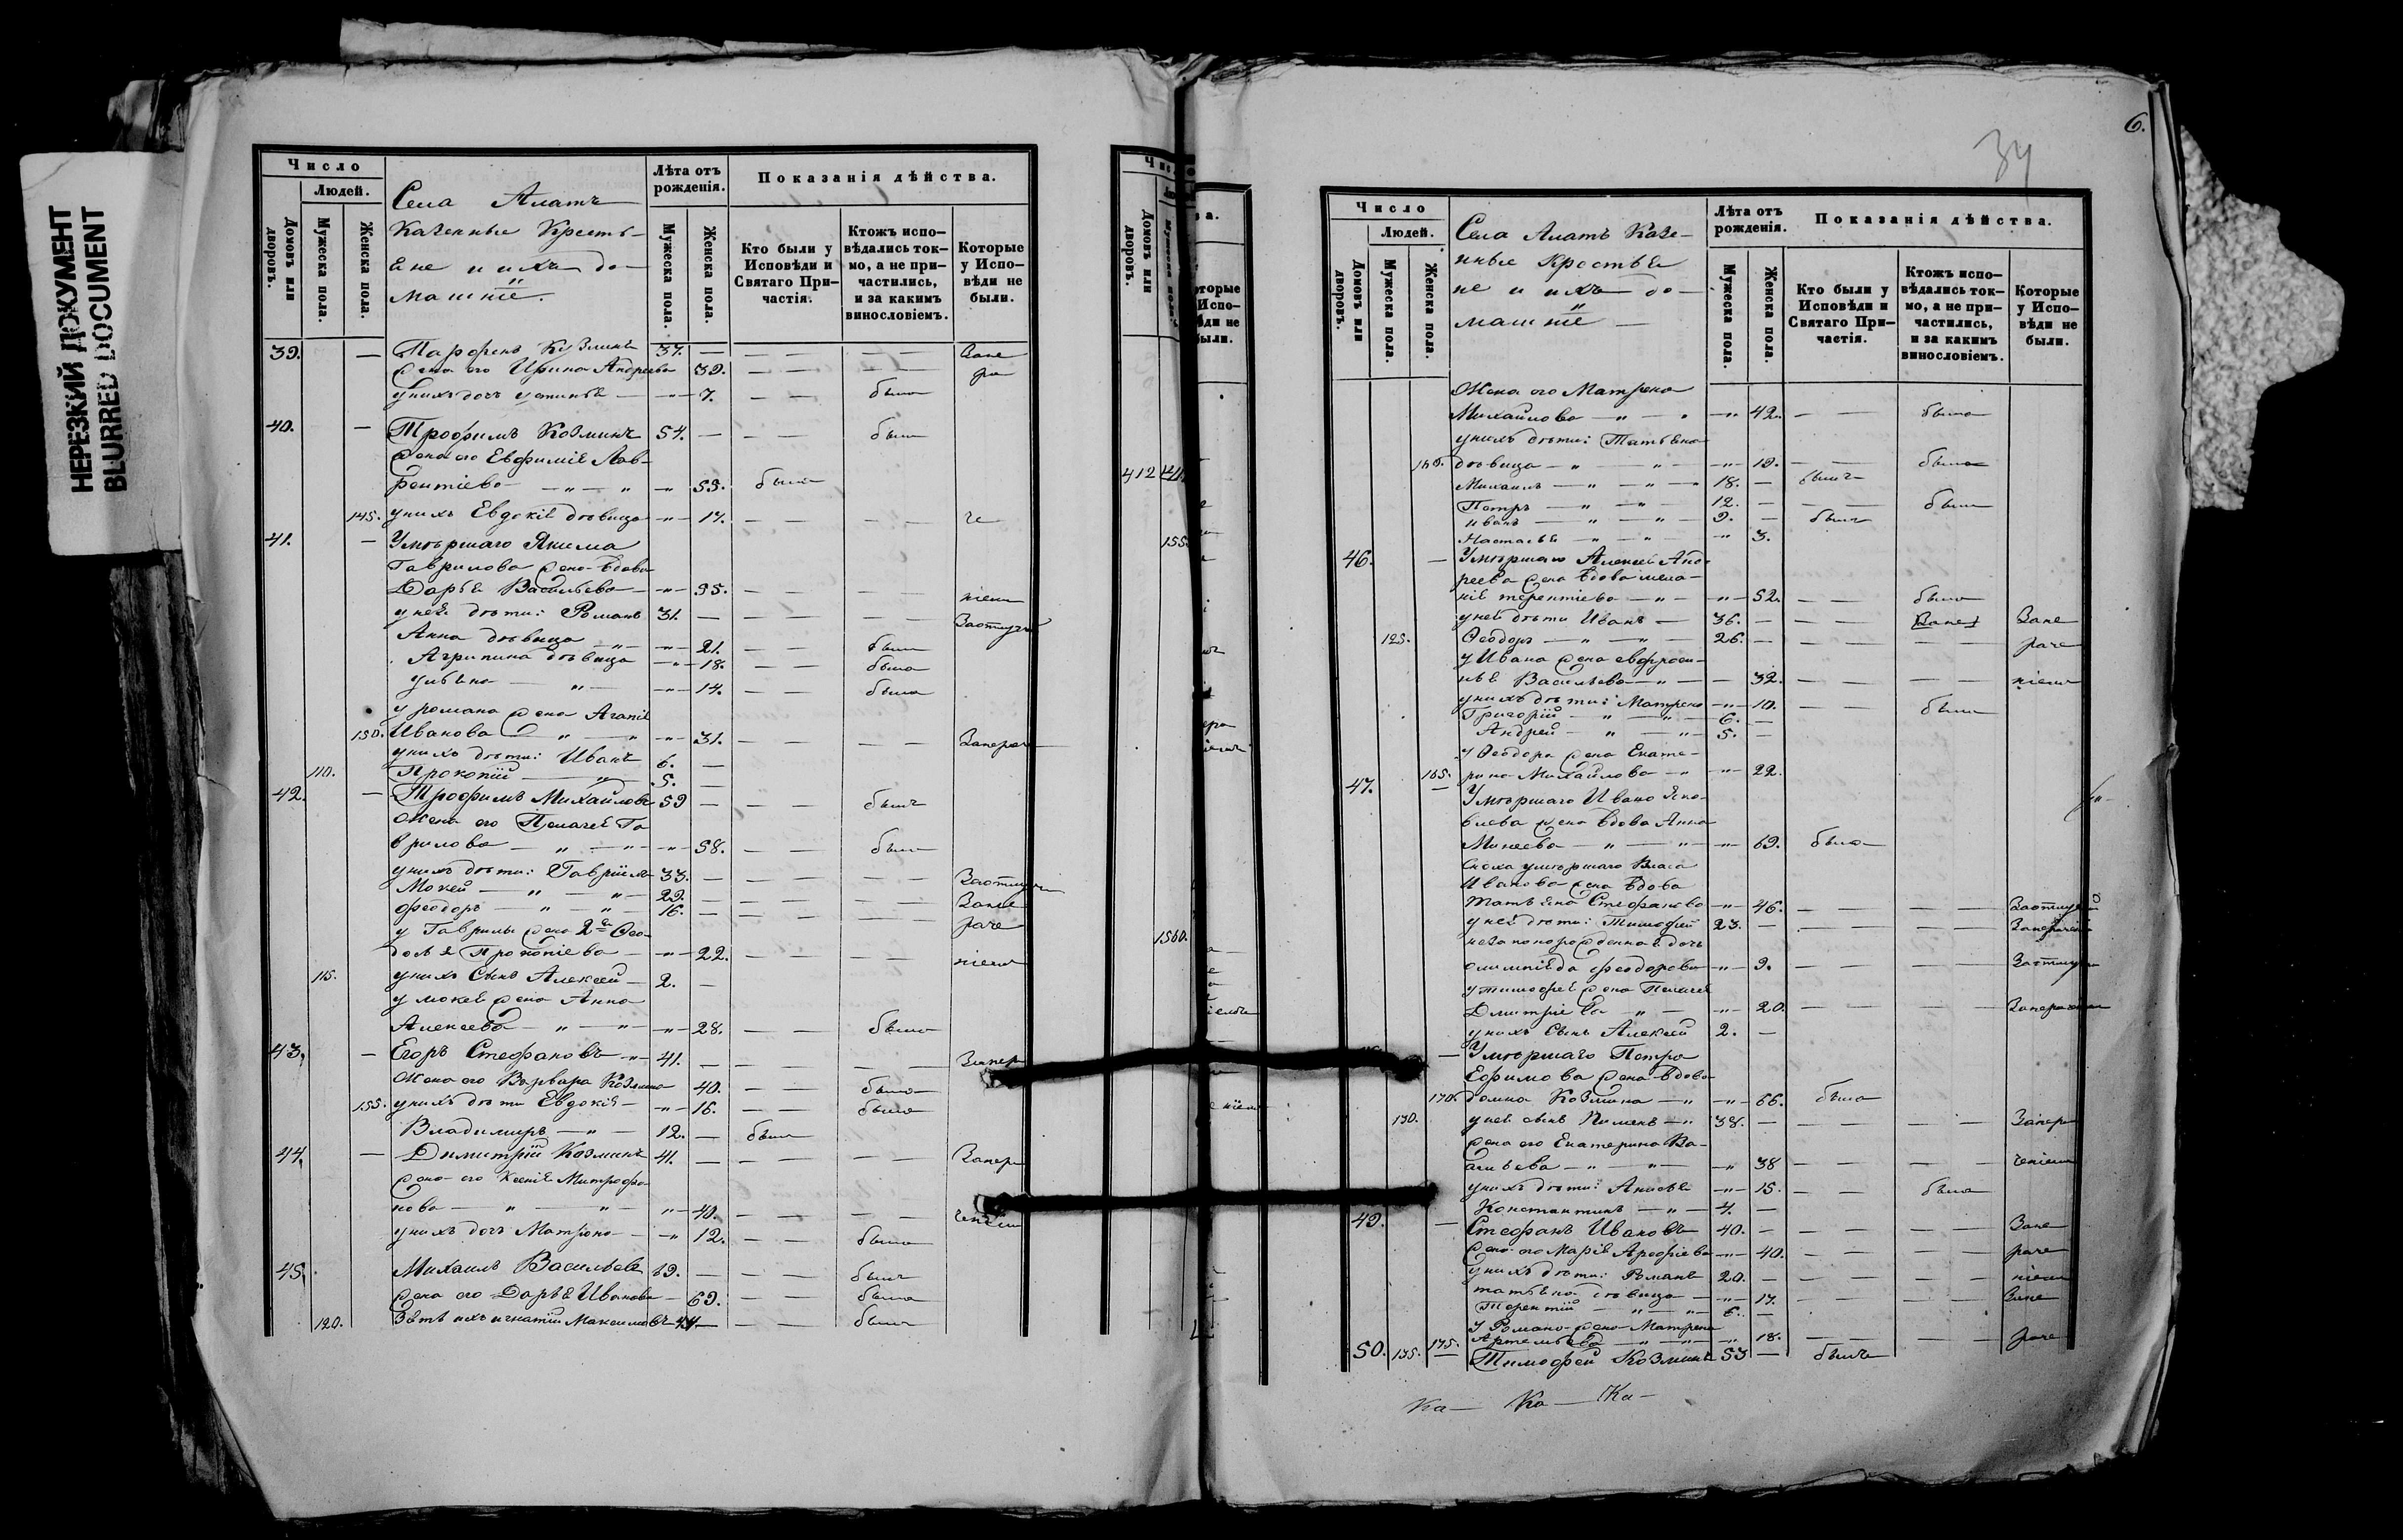 НЕРЕЗКИЙ ДОКУМЕНТ
BLURRED DOCUMENT
Число
Людей.
Домовъ или дворовъ.
Мужеска пола.
Женска пола.
Села Алатъ
Казенные Кресть-
яне и ихъ до-
машніе.
Лѣта отъ рожденія.
Мужеска пола.
Женска пола.
Показанія дѣйства.
Кто были у Исповѣди и Святаго При-частія.
Ктожъ испо-вѣдались ток-мо, а не при-частились, и за какимъ винословіемъ.
Которые у Испо-вѣди не были.
39. — Парфенъ Кузминъ 37. — Запе
жена его Ирина Андреева 39. ра
у нихъ дочь устинья 7. была
40. — Трофимъ Козминъ 54. — былъ
жена его Евфимія Лав-
рентіева 53. была
145. у нихъ Евдокія дѣвица 17. че
41. — Умершаго Якима
Гаврилова жена вдова
Дарья Васильева 55. ніемъ
у нея дѣти: Романъ 31. — Заотлуч
Анна дѣвица 21. была
Агрипина дѣвица 18. была
Ульяна 14. была
у романа жена Агапія
150. Иванова 31. Запераче
у нихъ дѣти: Иванъ 6. —
110. Прокопій 5. —
42. — Трофимъ Михайловъ 59 — былъ
Жена его Пелагея Га
врилова 58. была
у нихъ дѣти: Гавріилъ 33. — Заотлуч
Мокей 29. — Запе
Феодоръ 16. — раче
у Гаврилы жена 2я Фео-
досья Прокопіева 22. ніемъ
115. у нихъ Сынъ Алексей 2. —
у мокея жена Анна
Алексеева 28. была
43. — Егоръ Стефановъ 41. — Запер
Жена его Варвара Козмина 40. была
155. у нихъ дѣти Евдокія 16. была
Владимиръ 12. — былъ
44. — Димитрій Козминъ 41. — Запер
жена его Ксенія Митрофа
нова 40. ченіемъ
у нихъ дочь Матрона 12. была
45. Михаилъ Васильевъ 69. — былъ
жена его Дарья Иванова 69. была
120. Зять ихъ игнатій Максимовъ 44 — былъ
412
155
1560.
6.
34
Число
Людей.
Домовъ или дворовъ.
Мужеска пола.
Женска пола.
Села Алатъ Казе-
нные Крестья
не и ихъ до-
машніе
Лѣта отъ рожденія.
Мужеска пола.
Женска пола.
Показанія дѣйства.
Кто были у Исповѣди и Святаго При-частія.
Ктожъ испо-вѣдались ток-мо, а не при-частились, и за какимъ винословіемъ.
Которые у Испо-вѣди не были.
Жена его Матрена
Михайлова 42. была
у нихъ дѣти: Татьяна
160. дѣвица 19. была
Михаилъ 18. — былъ
Петръ 12. — былъ
иванъ 9. — былъ
Настасья 3.
46. — Умершаго Алексея Анд-
реева жена вдова мела-
нія терентіева 52. была
у ней дѣти Иванъ 36. — Запе Запе
125. Феодоръ 26. — раче
у Ивана жена евфроси-
нья Васильева 32. ніемъ
у нихъ дѣти: Матрена 10. была
Григорій 6. —
Андрей 5. —
у Феодора жена Екате-
165. рина Михайлова 22.
47. — Умершаго Ивана Яко-
влева жена вдова Анна
Минеева 69. была
Сноха умершаго Власа
Иванова жена вдова
Татьяна Стефанова 46. Заотлуч
у нея дѣти: Тимофей 23. — Запераченіе
незаконорожденная дочь
олимпіяда феодорова 9. Заотлуч
у тимофея жена Пелагея
Дмитріева 20. Запераченіемъ
у нихъ Сынъ Алексей 2. —
— Умершаго Петра
Ефимова жена вдова
170. домна Козмина 66. была
130. у нея сынъ Пименъ 38. — Запера
жена его Екатерина Ва-
сильева 38 ченіемъ
у нихъ дѣти: Анисья 15. была
Константинъ 4. —
49. — Стефанъ Ивановъ 40. — Запе
жена его Марія Арефіева 40. раче
у нихъ дѣти: Романъ 20. — ніемъ
татьяна дѣвица 17. Запе
Терентій 6. —
у Романа жена Матрена
175. Артемьева 18. раче
50. 135. — Тимофей Козминъ 53 — былъ
Ка— Ка— Ка—